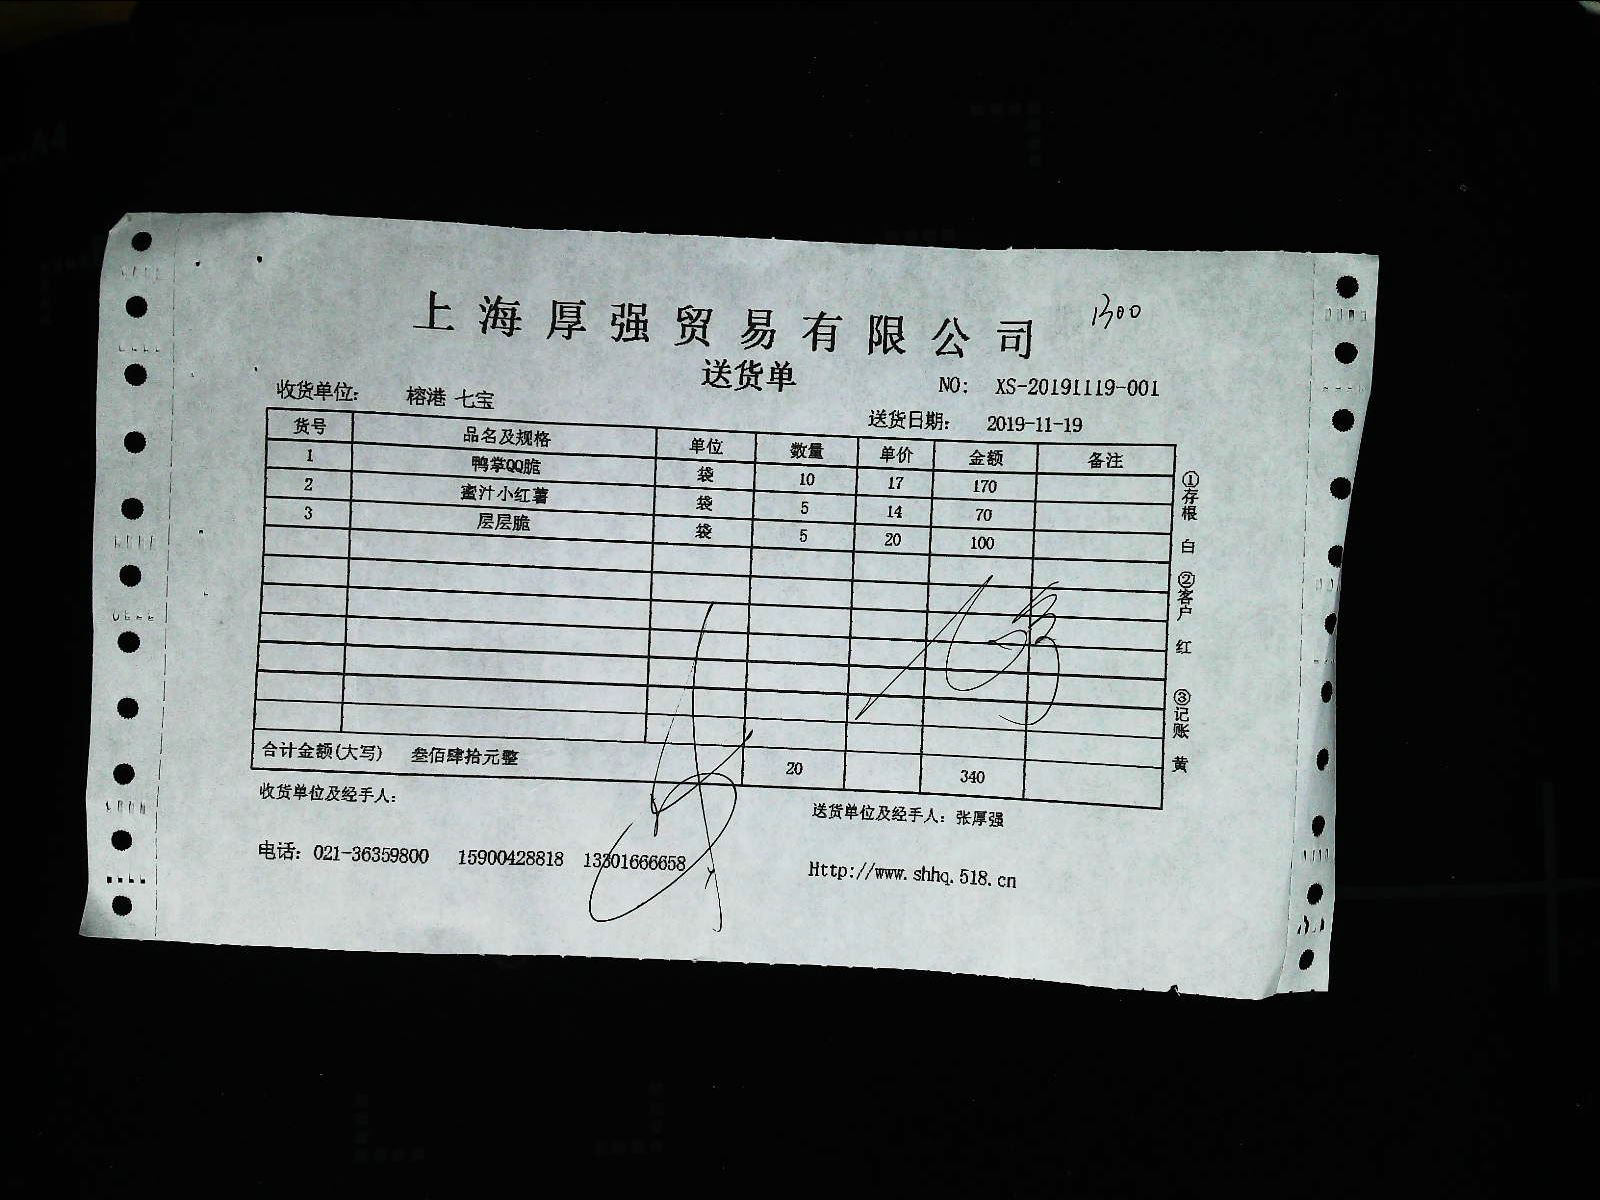 上海厚强贸易有限公司
1300
送货单
NO: XS-20191119-001
收货单位: 榕港 七宝
送货日期: 2019-11-19
货号 品名及规格 单位 数量 单价 金额 备注
1 鸭掌QQ脆 袋 10 17 170
2 蜜汁小红薯 袋 5 14 70
3 层层脆 袋 5 20 100
合计金额(大写) 叁佰肆拾元整 20 340
①存根 白 ②客户 红 ③记账 黄
收货单位及经手人:
送货单位及经手人: 张厚强
电话: 021-36359800 15900428818 13301666658
Http://www.shhq.518.cn